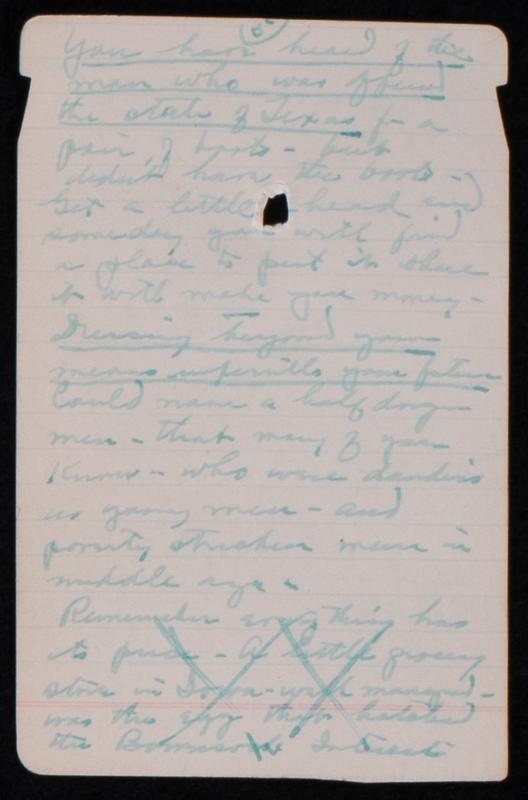 5
You have head of the
man who was offered
the state of Texas for a
pair of boots - but
didn't have the boots -
Get a little ahead and
someday you will find
a place to put it where
it will make you money -
Dressing beyond your
means imperills your future
Could name a half dozen
men - that many of you
Know - who were dandies
as young men - and
poverty stricken men in
middle age -
Remember everything has
its price - A little grocery
store in Iowa - well managed -
was the egg that hatched
the Interests